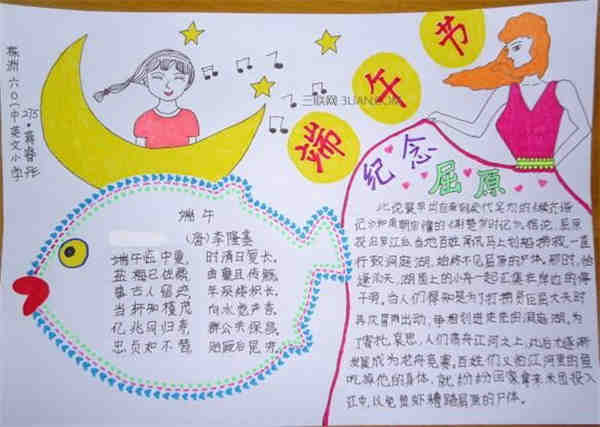 株洲六〇一中英文小学
275
端午节
三联网 3LIAN.COM
纪念屈原
端午
(唐)李隆基
端午临中夏，时清日复长。
盐梅已佐鼎，曲糵且传觞。
事古人留迹，年深缕积长。
当轩知槿茂，向水觉芦香。
亿兆同归寿，群公共保昌。
忠贞如不替，贻厥后昆芳。
此说最早出自南朝梁代吴均的《续齐谐
记》和南朝宗懔的《荆楚岁时记》。据说，屈原
投汨罗江后，当地百姓闻讯马上划船捞救，一直
行致洞庭湖，始终不见屈原的尸体。那时，恰
逢雨天，湖面上的小舟一起汇集在岸边的亭
子旁。当人们得知是为了打捞贤臣屈大夫时
再次冒雨出动，争相划进茫茫的洞庭湖。为
了寄托哀思，人们荡舟江河之上，此后才逐渐
发展成为龙舟竞赛。百姓们又怕江河里的鱼
吃掉他的身体，就纷纷回家拿来米团投入
江中，以免鱼虾糟蹋屈原的尸体。